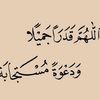 اللَّهُمَّ قَدَرًا جَمِيلًا
وَدَعْوَةً مُسْتَجَابَة